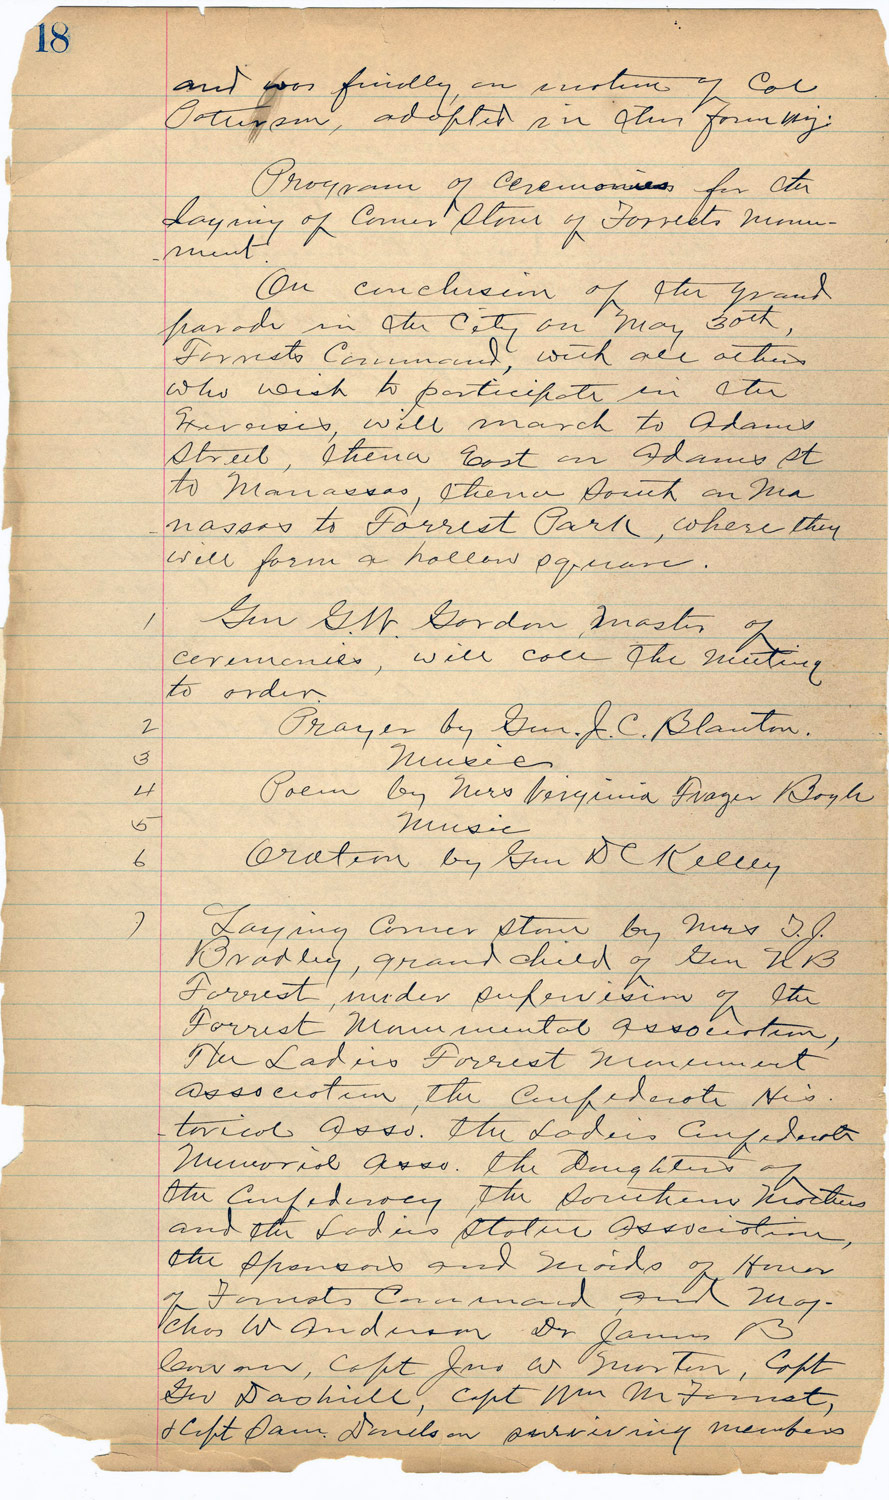 18
and was finally, on motion of Col
Patterson, adopted in this form viz:
Program of ceremonies for the
laying of Corner Stone of Forrests Monu-
-ment.
On conclusion of the grand
parade in the City on May 30th,
Forrests Command, with all others
who wish to participate in the
Exercises, will march to Adams
Street, thence East on Adams St
to Manassas, thence South on Ma
-nassas to Forrest Park, where they
will form a hollow square.
1 Gen G.W. Gordon, Master of
ceremonies, will call the meeting
to order.
2 Prayer by Gen. J. C. Blanton.
3 Music
4 Poem by Mrs Virginia Frazer Boyle
5 Music
6 Oration by Gen D C Kelley
7 Laying Corner Stone by Mrs T. J.
Bradley, grand child of Gen N B
Forrest, under supervision of the
Forrest Monumental Association,
The Ladies Forrest Monument
Association, the Confederate His-
-torical Asso. the Ladies Confederate
Memorial Asso. the Daughters of
the Confederacy, the Southern Mothers
and the Ladies Statue Association,
the Sponsors and Maids of Honor
of Forrests Command, and Maj-
Chas W Anderson Dr James B
Cowan, Capt Jno W Morton, Capt
Geo Dashiell, Capt Wm M Forrest,
& Capt Sam. Donelson surviving members